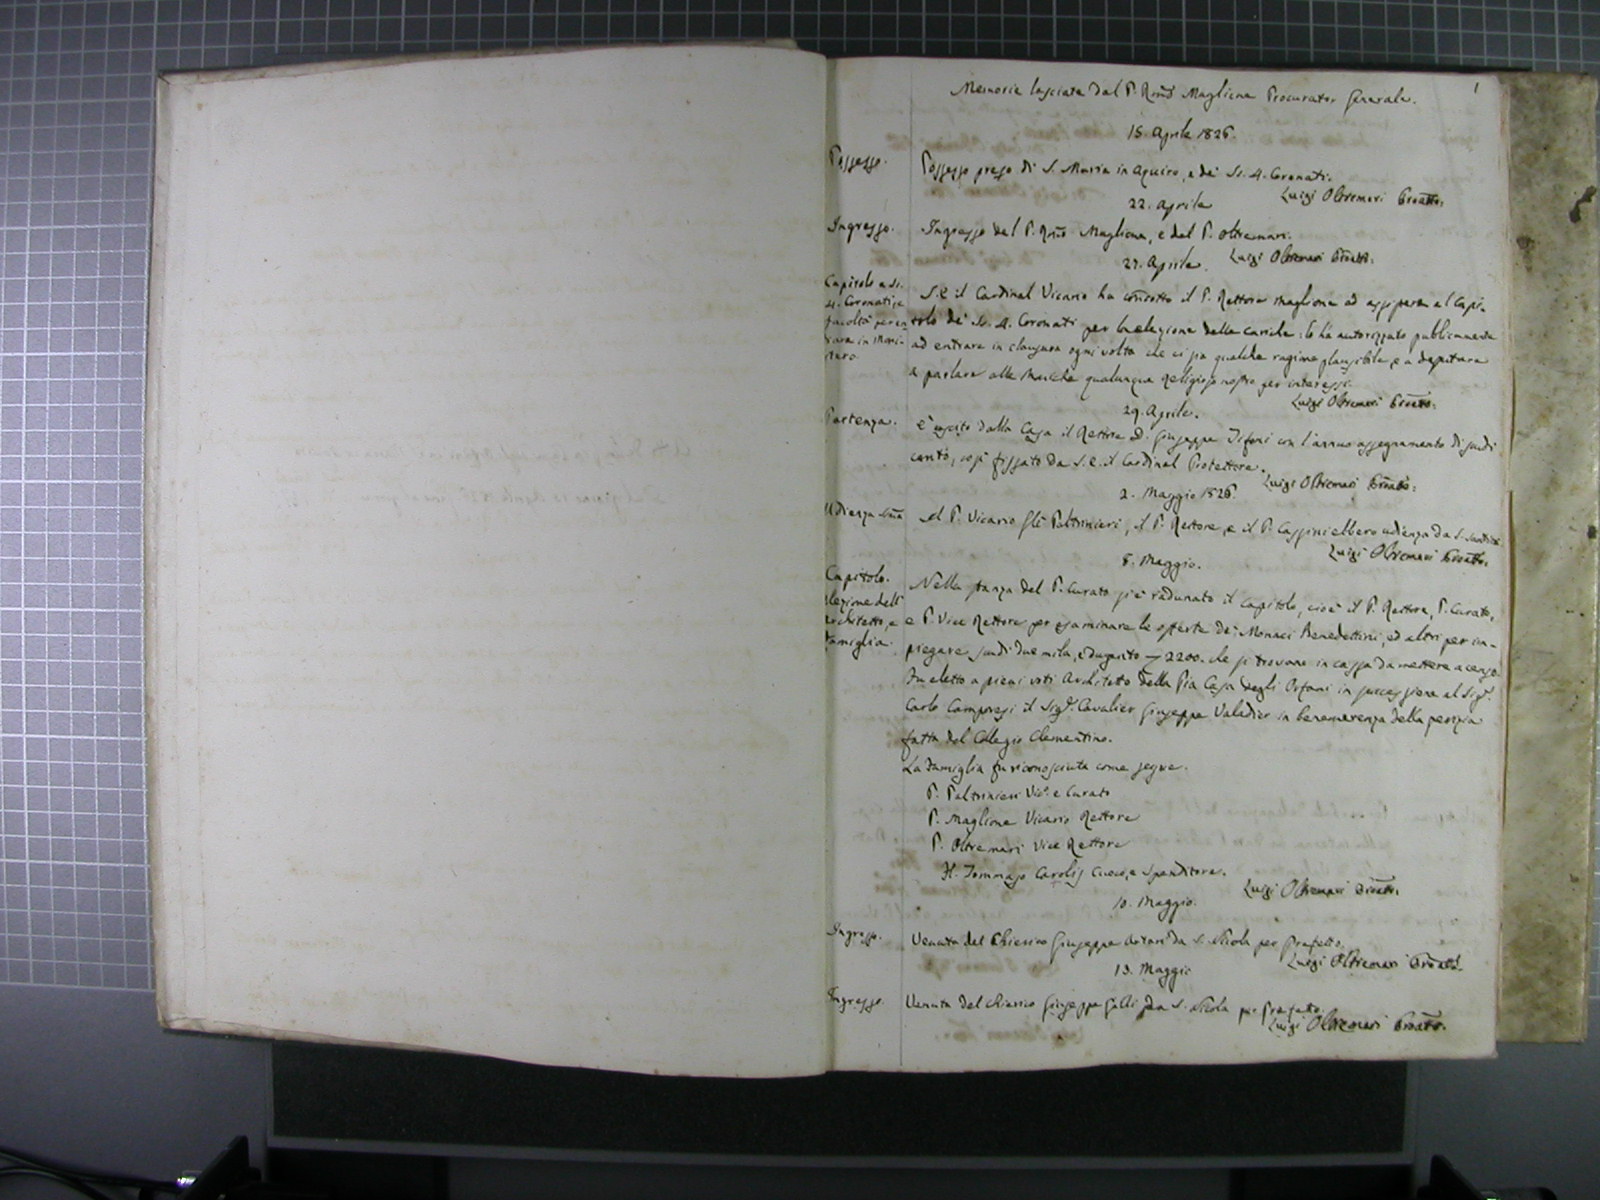 1
Memorie lasciate dal P. Rmo Maglione Procurator Generale.
15. Aprile 1826.
Possesso.
Possesso preso di S. Maria in Aquiro, e dei Ss. 4. Coronati.
Luigi Oltremari Proatto:
22. Aprile
Ingresso.
Ingresso del P. Rmo Maglione, e del P. Oltremari.
Luigi Oltremari Proatto:
27. Aprile.
Capitolo a Ss.
4. Coronati, e
facoltà per en
trare in Moni-
stero
S. E. il Cardinal Vicario ha condotto il P. Rettore Maglione ad assistere al Capi-
tolo de' Ss. 4. Coronati per la elezione delle cariche: lo ha autorizzato publicamente
ad entrare in clausura ogni volta che ci sia qualche ragione plausibile, e a deputare
a parlare alle Monache qualunque Religioso nostro per interessi.
Luigi Oltremari Proatto:
29. Aprile.
Partenza.
È uscito dalla Casa il Rettore D. Giuseppe Tifoni con l'annuo assegnamento di scudi
cento, così fissato da S. E. il Cardinal Protettore.
Luigi Oltremari Proatto:
2. Maggio 1826.
Udienza Sma
Il P. Vicario Gle Paltrinieri, il P. Rettore, e il P. Cassini ebbero udienza da S. Santità
Luigi Oltremari Proatto:
8. Maggio.
Capitolo.
elezione dell'
Architetto, e
Famiglia.
Nella stanza del P. Curato si è radunato il Capitolo, cioè il P. Rettore, P. Curato,
e P. Vice Rettore per esaminare le offerte de' Monaci Benedettini, ed altri per im-
piegare scudi due mila, e dugento 2200. che si trovano in cassa da mettere a censo.
Fu eletto a pieni voti Architetto della Pia Casa degli Orfani in successione al Sigr.
Carlo Camporesi il Sigr. Cavalier Giuseppe Valadier in benemerenza della perizia
fatta del Collegio Clementino.
La Famiglia fu riconosciuta come segue.
P. Paltrinieri Vic. e Curato
P. Maglione Vicario Rettore
P. Oltremari Vice Rettore
H. Tommaso Carolis Cuoco, e Spenditore.
Luigi Oltremari Proatto:
10. Maggio.
Ingresso.
Venuta del Chierico Giuseppe da S. Nicola per Prefetto.
Luigi Oltremari Proatto:
13. Maggio
Ingresso.
Venuta del Chierico Giuseppe Galli da S. Nicola per Prefetto.
Luigi Oltremari Proatto: